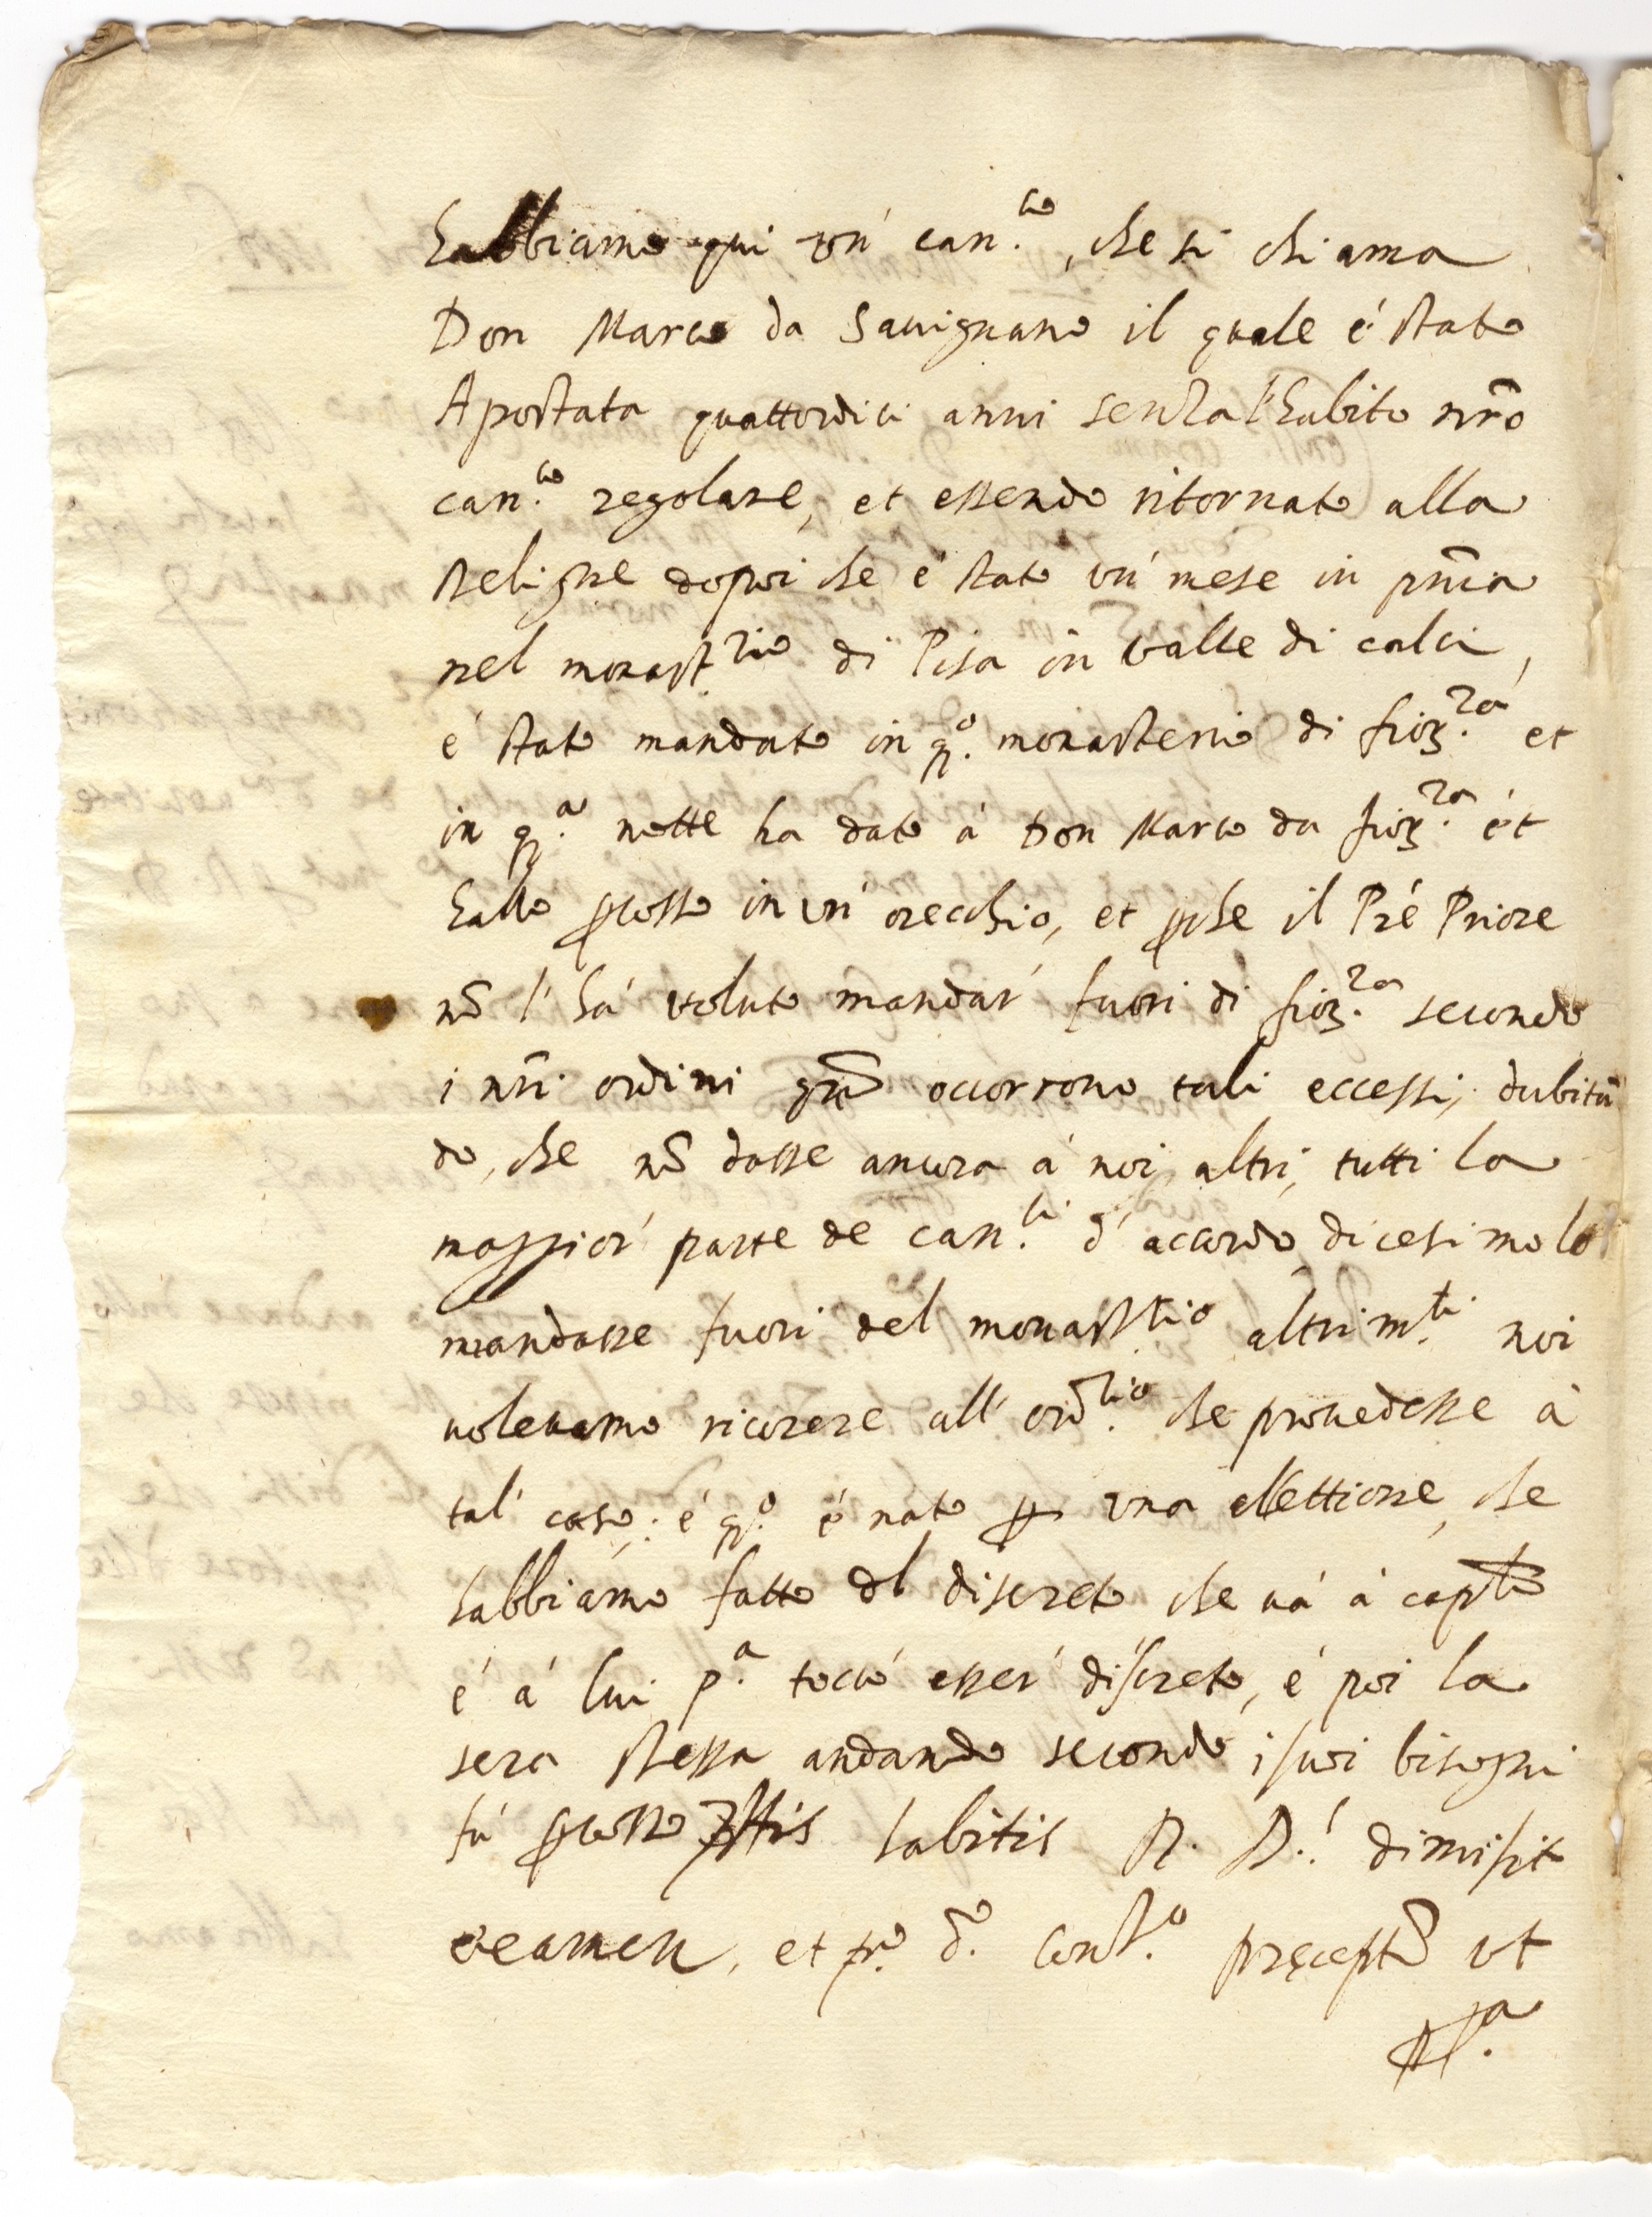 habbiamo qui un' can.co, che si chiama
Don Marco da Sauignano il quale é stato
Apostata quattordici anni senza l'habito nr̃o
can.co regolare, et essendo ritornato alla
Religne dopoi che é stato un' mese in pñia
nel monast.rio di Pisa in Valle di calci,
é stato mandato in q.o monasterio di fioz.za et
in q.a notte ha dato á Don Marco da fioz.za ét
hallo pcosso in un' orecchio, et pche il Pré Priore
nõ l'há voluto mandar' fuori di fioz.za secondo
i nr̃i ordini qñ occorrono tali eccessi, dubitã
do, che nõ dasse ancora á noi altri, tutti la
maggior' parte de can.ci d'accordo dicesimo lo
mandasse fuori del monast.rio altrim.ti noi
uoleuamo ricorere all' ord.rio che prouedesse á
tal' caso: é q.o é nato p una ellettione, che
habbiamo fatto dl discreto che uá á capto
é á lui p.a toccó esser' discreto, é poi la
sera stessa andando secondo i suoi bisogni
fú pcosso habitis R. D.! dimisit
examen, et d.o Const.o preceptũ ut